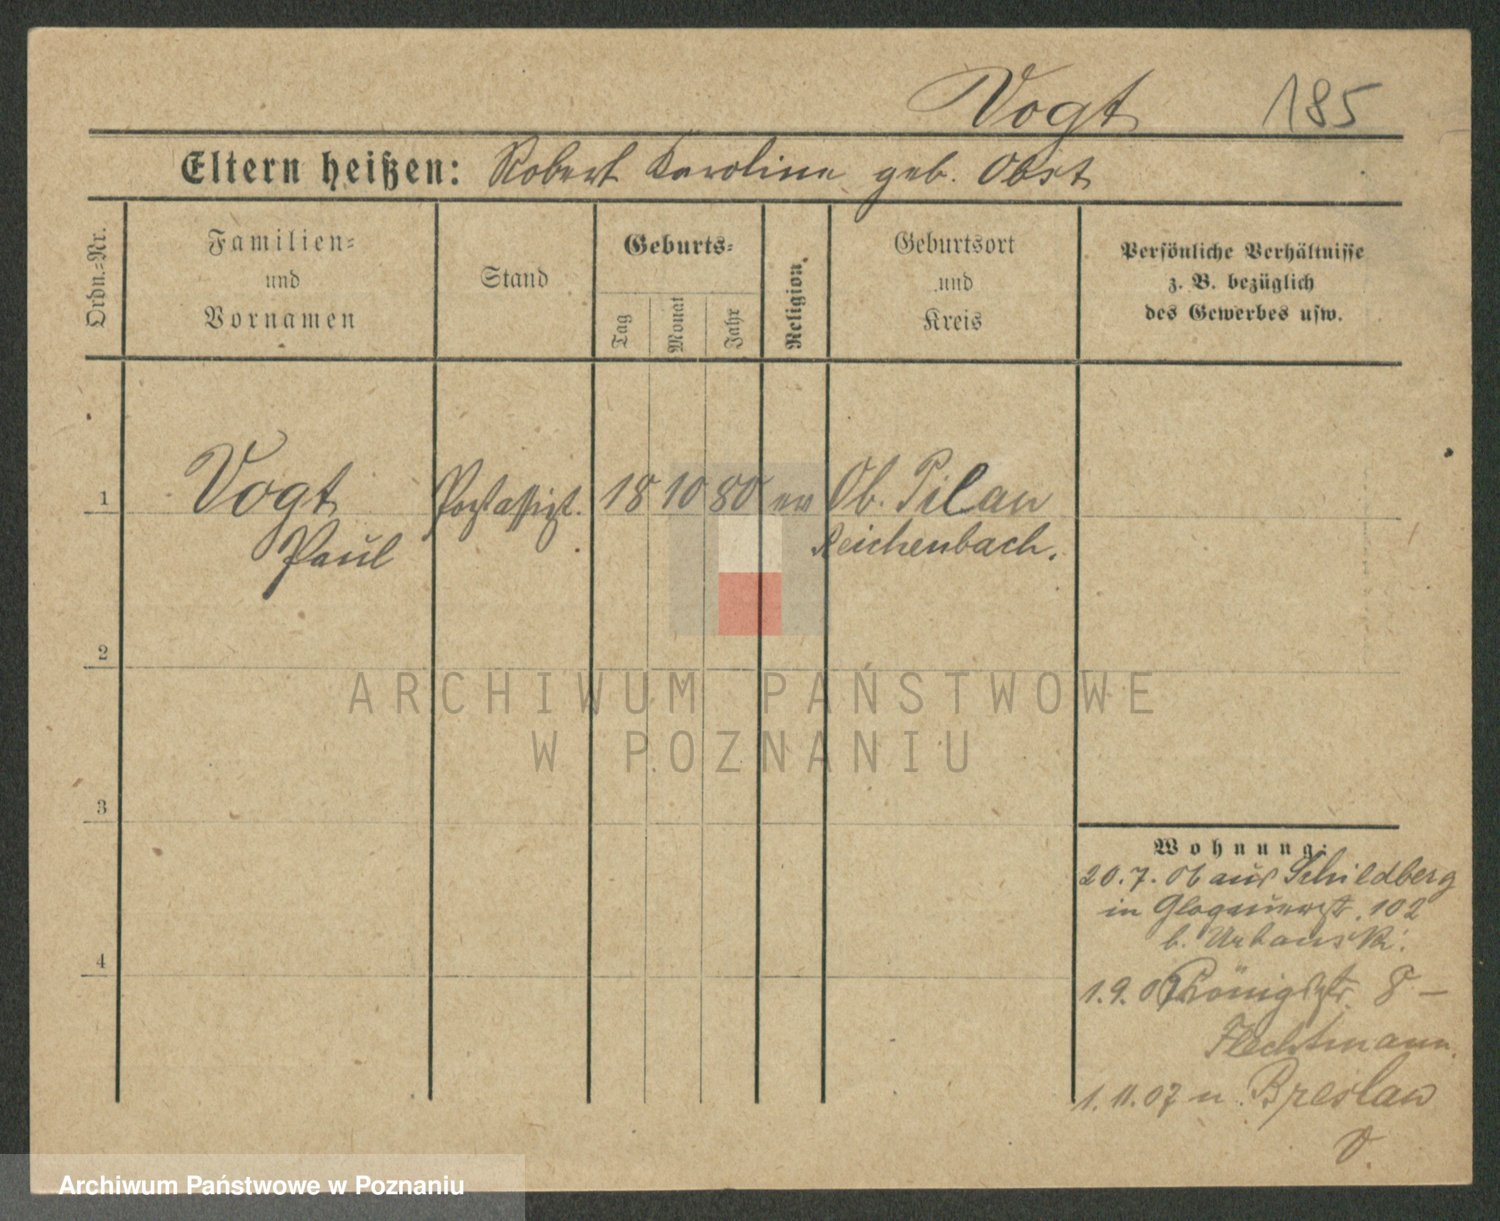 Vogt 185
Eltern heißen: Robert Karoline geb. Obst
Ordn.=Nr.
Familien=
und
Vornamen
Stand
Geburts=
Tag
Monat
Jahr
Religion.
Geburtsort
und
Kreis
Persönliche Verhältnisse
z. B. bezüglich
des Gewerbes usw.
1 Vogt Postassist. 18 10 80 ev Ob. Pilau
Paul Reichenbach.
2
3
4
ARCHIWUM PAŃSTWOWE
W POZNANIU
Wohnung:
20.7.06 aus Schildberg
in Glogauerstr. 102
b. Urbanski.
1.9.07 Königstr. 8 –
Flechtmann.
1.11.07 n. Breslau
Archiwum Państwowe w Poznaniu